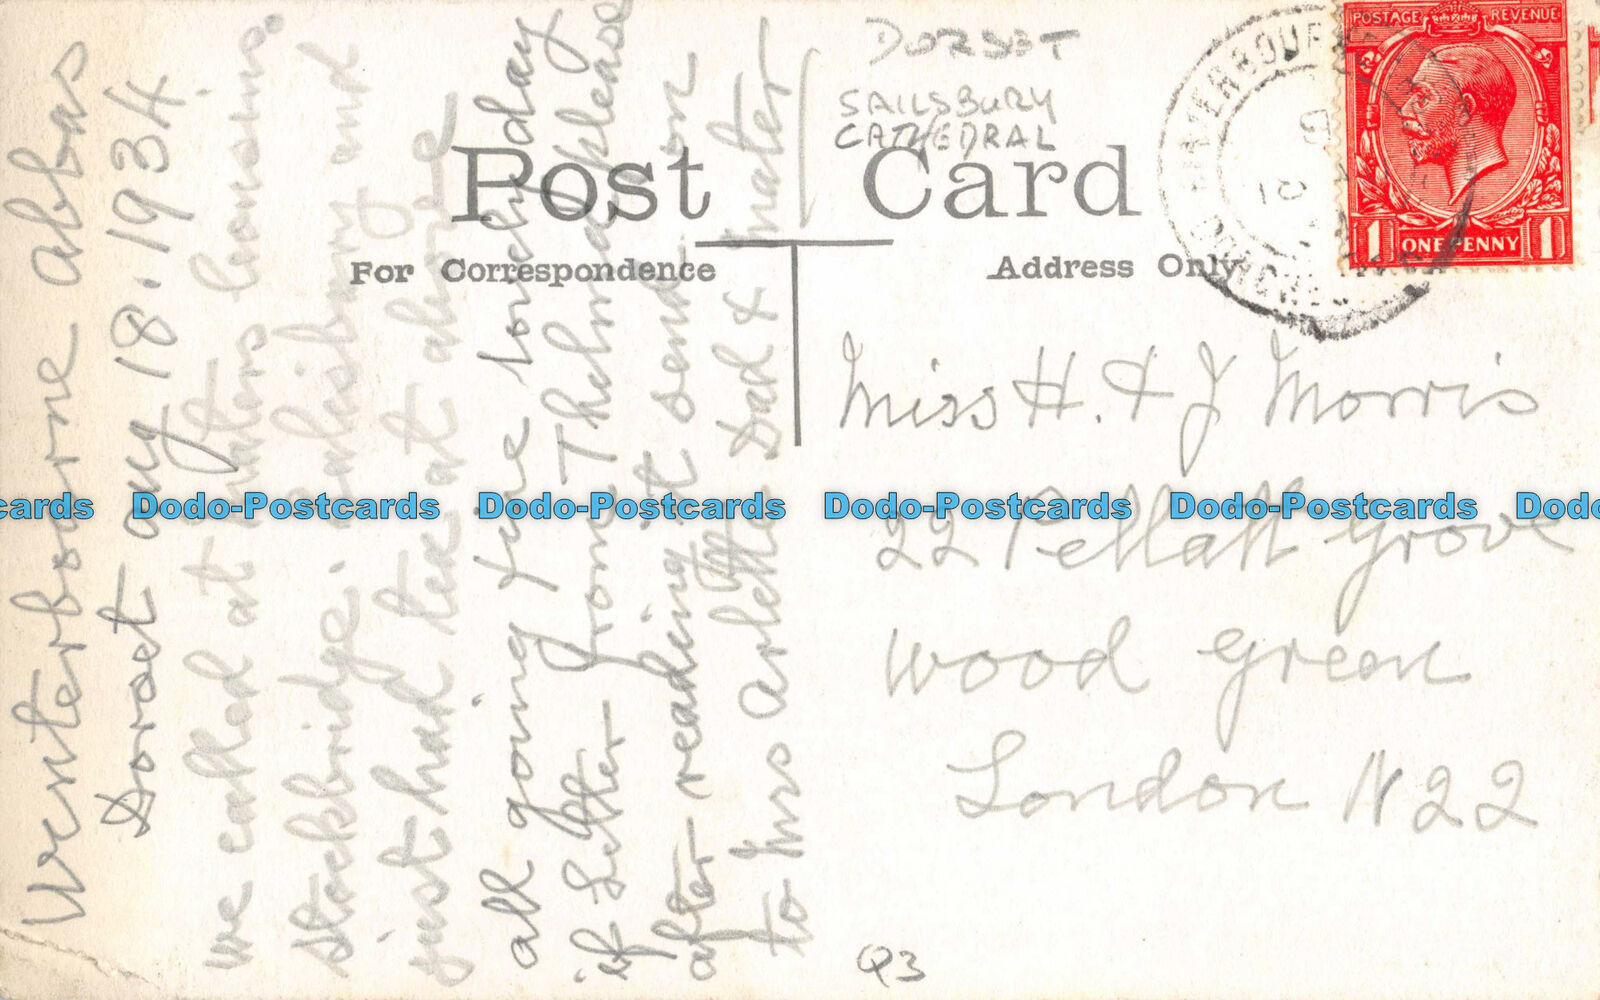 Wenterbourne Abbas
Dorset aug 18.1934
we called at
Stockbridge. Salisbury and
just had tea at above
all going fine lovely day
if Letter from Thelma please
after reading it send on
to Mrs Arlette Dad & Mater
DORSET
SAILSBURY
CATHEDRAL
Post Card
For Correspondence
Address Only
POSTAGE REVENUE
1 ONE PENNY 1
Miss H. & J Morris
22 Pellatt Grove
Wood Green
London N22
Dodo-Postcards Dodo-Postcards Dodo-Postcards Dodo-Postcards
Q3